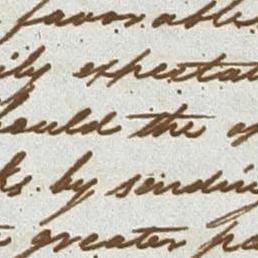 favorable
ily expectat
hould the o
ks by sendin
greater pa